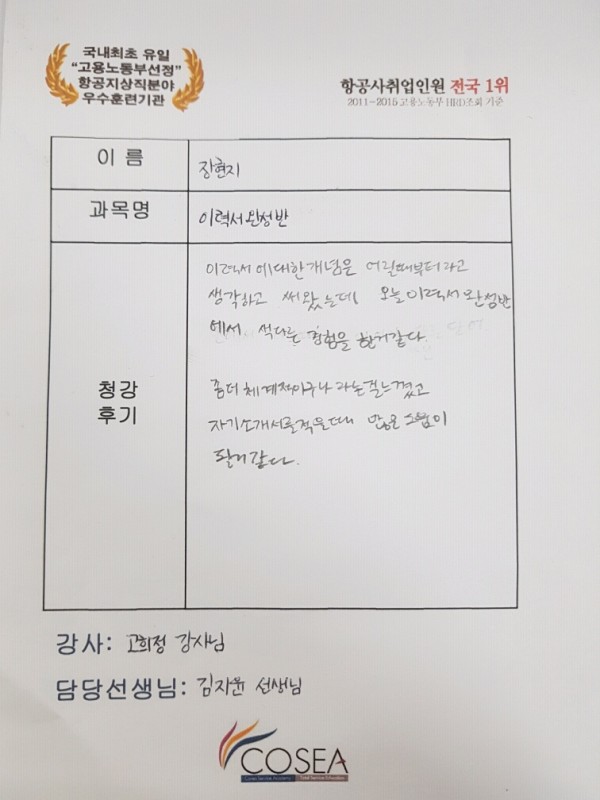 국내최초 유일
"고용노동부선정"
항공지상직분야
우수훈련기관
항공사취업인원 전국 1위
2011-2015 고용노동부 HRD조회 기준
이 름
장현지
과목명
이력서완성반
청강
후기
이력서에대한개념은 어릴때부터라고
생각하고 써왔는데 오늘이력서완성반
에서 색다른 경험을 한거같다.
좀더 체계적이구나 라는걸느꼈고
자기소개서를적을때 많은 도움이
될거같다.
강사: 고희정 강사님
담당선생님: 김지윤 선생님
COSEA